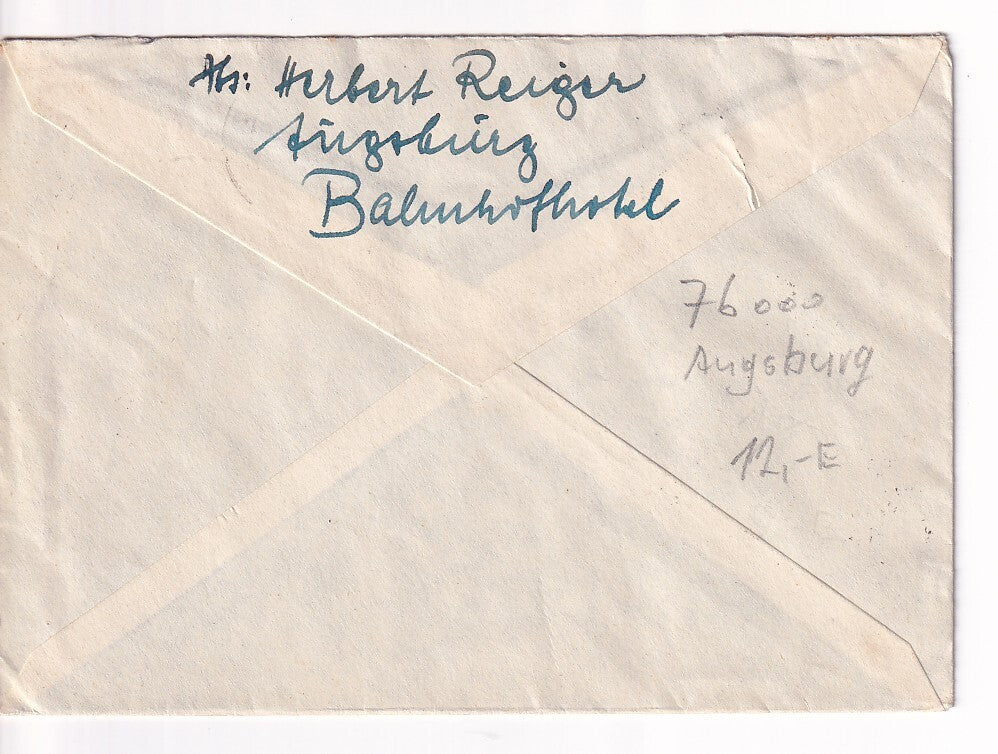 Abs: Herbert Reiger
Augsburg
Bahnhofhotel
76000
Augsburg
12,-E